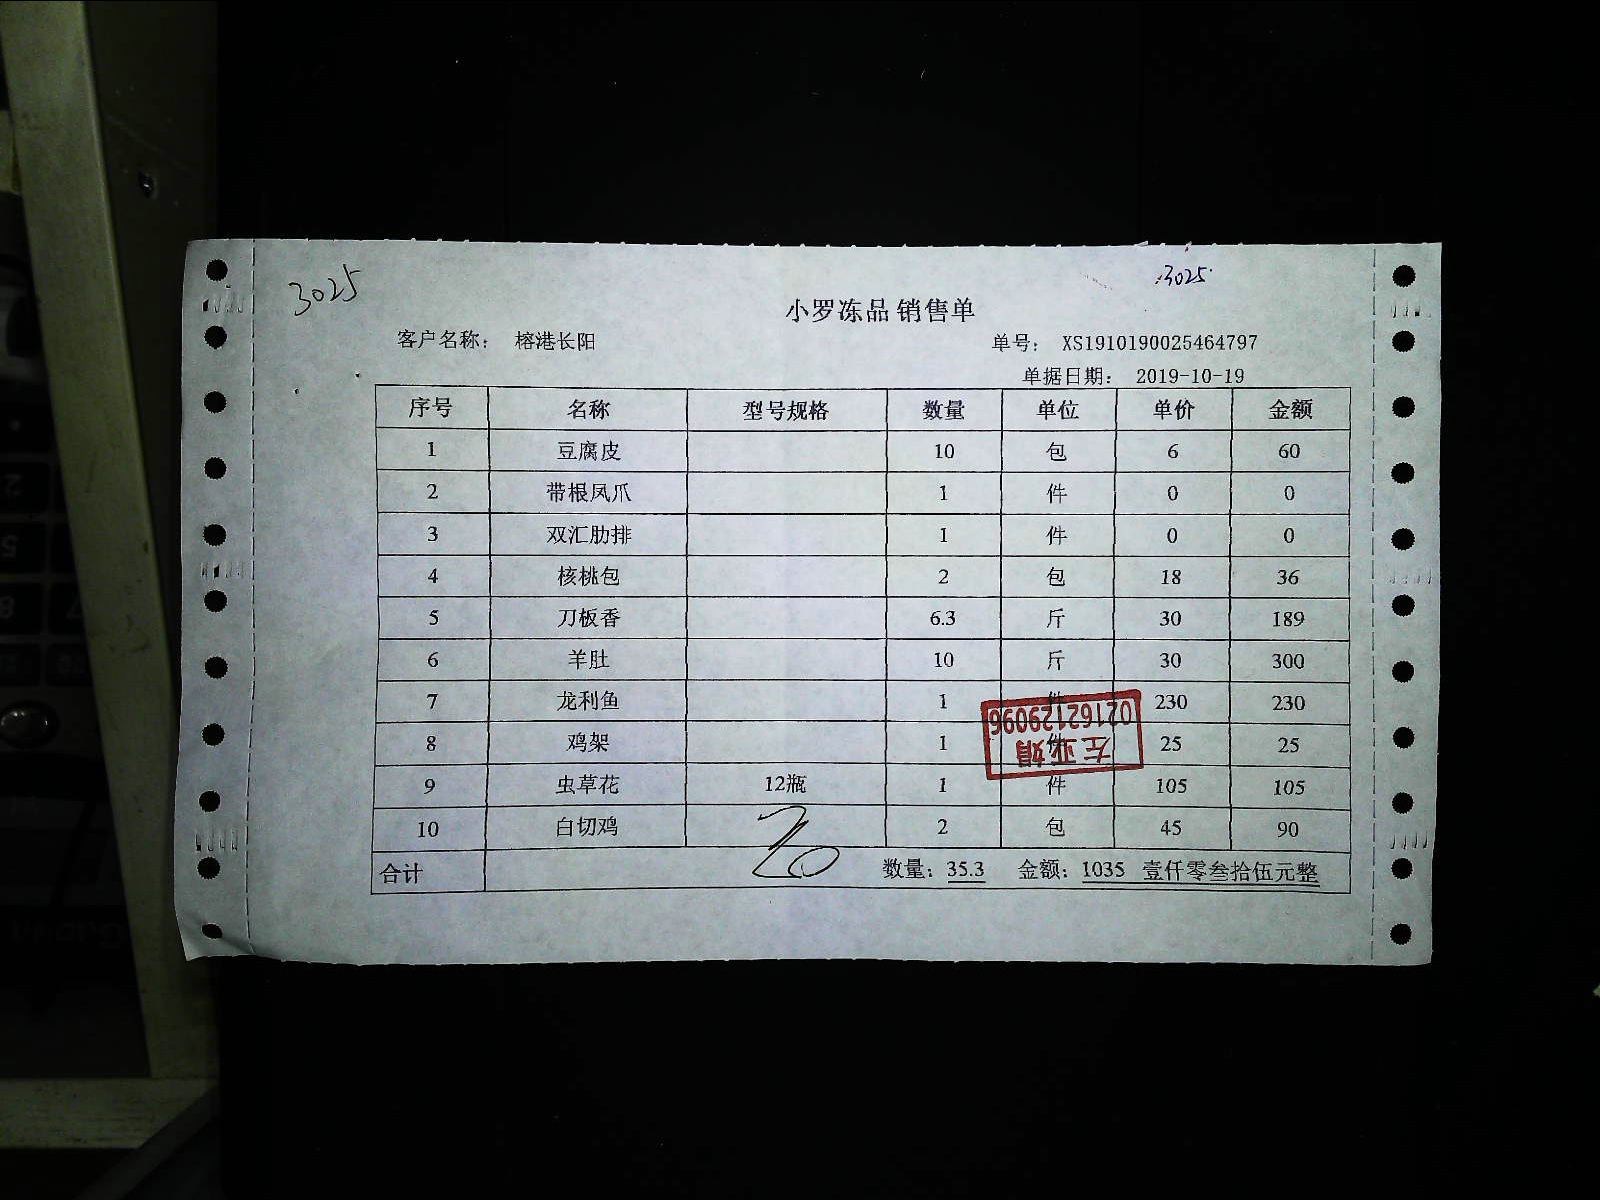 3025
3025
小罗冻品 销售单
客户名称： 榕港长阳 单号： XS1910190025464797
单据日期： 2019-10-19
序号 名称 型号规格 数量 单位 单价 金额
1 豆腐皮 10 包 6 60
2 带根凤爪 1 件 0 0
3 双汇肋排 1 件 0 0
4 核桃包 2 包 18 36
5 刀板香 6.3 斤 30 189
6 羊肚 10 斤 30 300
7 龙利鱼 1 件 230 230
8 鸡架 1 件 25 25
9 虫草花 12瓶 1 件 105 105
10 白切鸡 2 包 45 90
合计 数量：35.3 金额：1035 壹仟零叁拾伍元整
左亚娟
02162129096